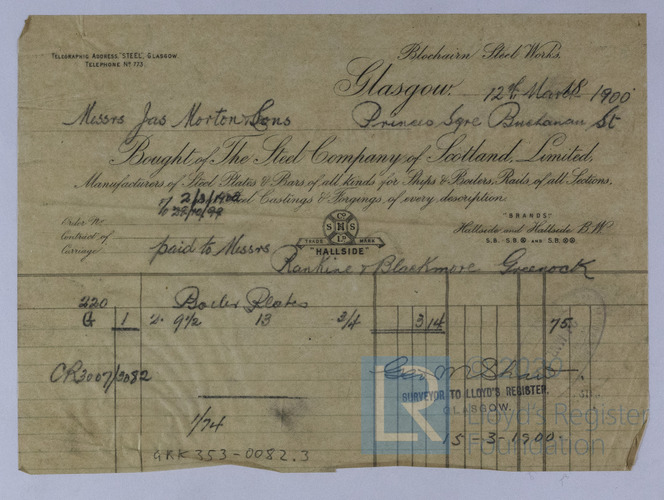 TELEGRAPHIC ADDRESS "STEEL", GLASGOW.
TELEPHONE No 773.
Blochairn Steel Works.
Glasgow. 12th March 1900
Messrs Jas Morton & Sons Princes Sqre Buchanan St
Bought of The Steel Company of Scotland, Limited,
Manufacturers of Steel Plates & Bars of all kinds for Ships & Boilers, Rails of all Sections,
Steel Castings & Forgings of every description
Order No 2/3/1900
Contract of 28/10/99
Carriage paid to Messrs
Co
S H S
LD
TRADE MARK
"HALLSIDE"
"BRANDS"
Hallside and Hallside B.W.
S.B. S.B. AND S.B.
Rankine & Blackmore Greenock
220 Boiler Plates
G 1 2. 9½ 13 3/4 314 75
CR3007/3082
Geo M Shaw
SURVEYOR TO LLOYD'S REGISTER,
GLASGOW.
15-3-1900.
1/74
GRK 353-0082.3
LR
Lloyd's Register
Foundation